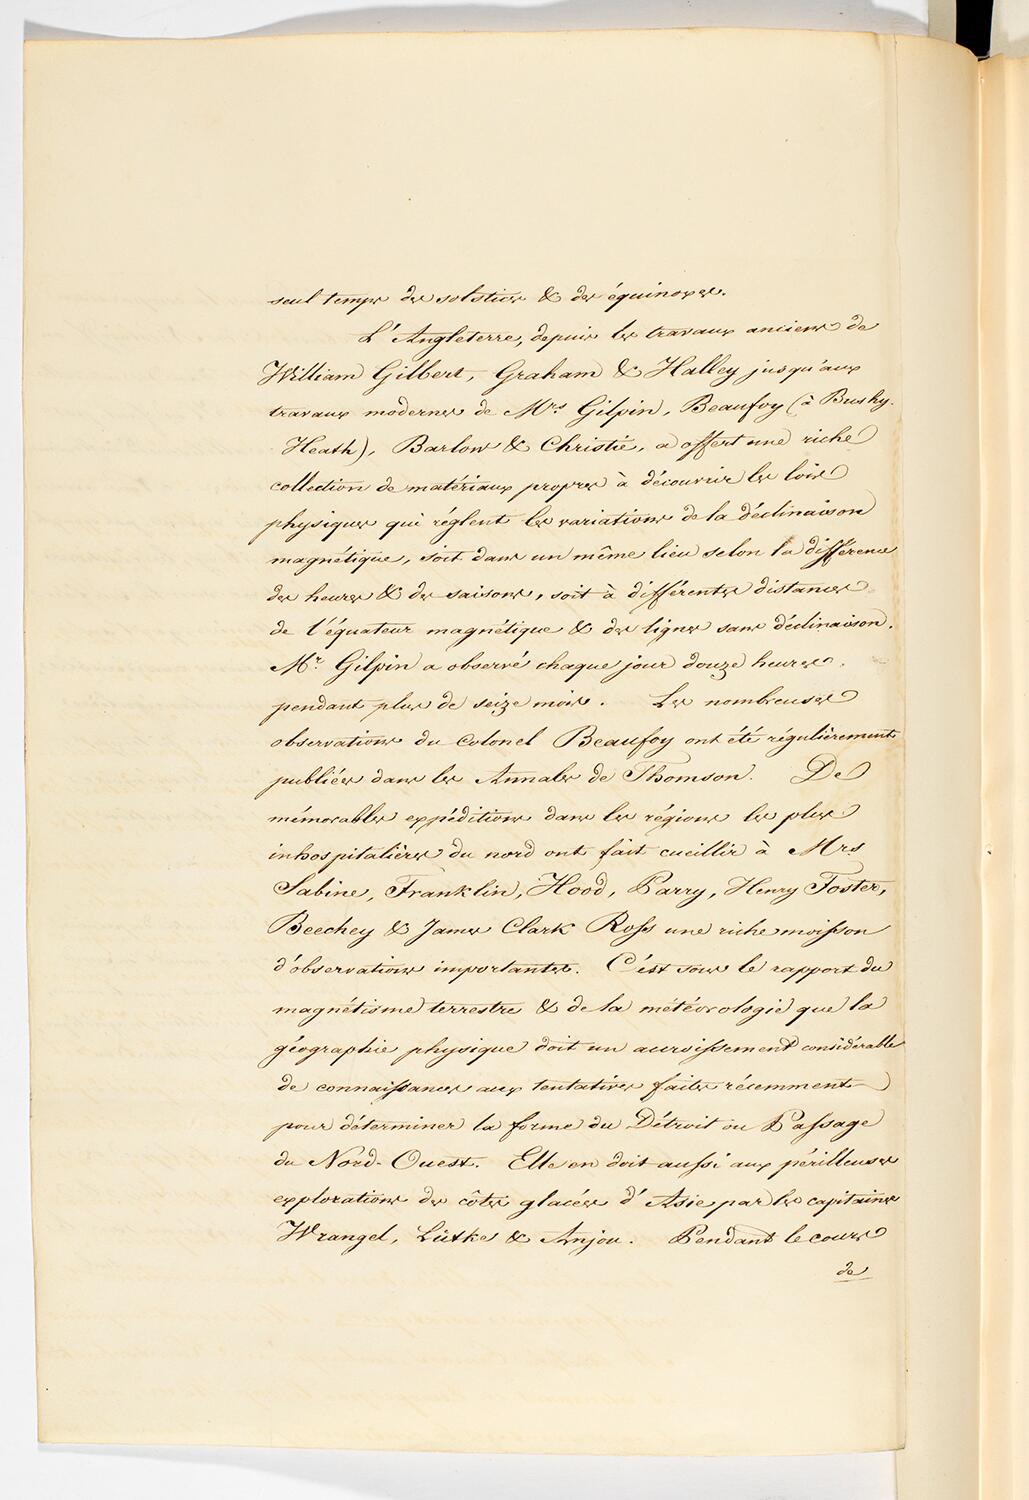 seul temps des solstices & des équinoxes.
L'Angleterre, depuis les travaux anciens de
William Gilbert, Graham & Halley jusqu'aux
travaux modernes de Mrs Gilpin, Beaufoy (à Bushy-
Heath), Barlow & Christie, a offert une riche
collection de matériaux propres à découvrir les lois
physiques qui réglent les variations de la déclinaison
magnétique, soit dans un même lieu selon la différence
des heures & des saisons, soit à différentes distances
de l'équateur magnétique & des lignes sans déclinaison.
Mr. Gilpin a observé chaque jour douze heures,
pendant plus de seize mois. Les nombreuses
observations du Colonel Beaufoy ont été régulièrement
publiées dans les Annales de Thomson. De
mémorables expéditions dans les régions les plus
inhospitalières du nord ont fait cueillir à Mrs
Sabine, Franklin, Hood, Parry, Henry Foster,
Beechey & James Clark Ross une riche moisson
d'observations importantes. C'est sous le rapport du
magnétisme terrestre & de la météorologie que la
géographie physique doit un accroissement considérable
de connaissances aux tentatives faites récemment
pour déterminer la forme du Détroit ou Passage
du Nord-Ouest. Elle en doit aussi aux périlleuses
explorations des côtes glacées d'Asie par les capitaines
Wrangel, Lütke & Anjou. Pendant le cours
de